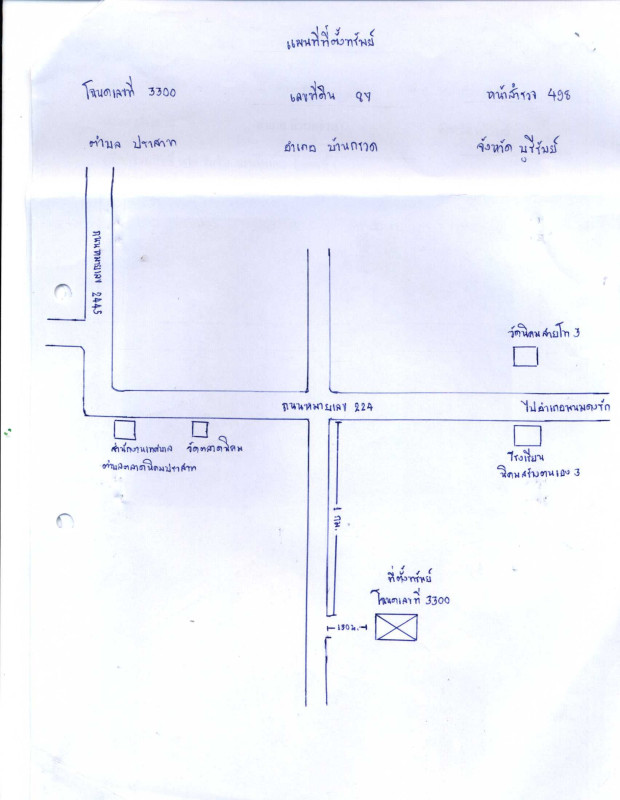 แผนที่ที่ตั้งทรัพย์
โฉนดเลขที่ 3300 เลขที่ดิน 84 หน้าสำรวจ 498
ตำบล ปราสาท อำเภอ บ้านกรวด จังหวัด บุรีรัมย์
ถนนหมายเลข 2445
วัดนิคมสายโท 3
ถนนหมายเลข 224
ไปอำเภอพนมดงรัก
สำนักงานเทศบาล
ตำบลตลาดนิคมปราสาท
วัดตลาดนิคม
โรงเรียน
นิคมสร้างตนเอง 3
1 กม.
ที่ตั้งทรัพย์
โฉนดเลขที่ 3300
130 ม.